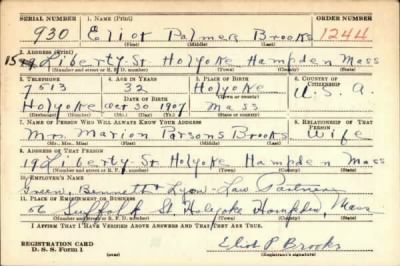 SERIAL NUMBER 1. NAME (Print) ORDER NUMBER
930 Eliot Palmer Brooks 1244
(First) (Middle) (Last)
2. ADDRESS (Print)
19 Liberty St Holyoke Hampden Mass
(Number and street or R. F. D. number) (Town) (County) (State)
3. TELEPHONE 4. AGE IN YEARS 5. PLACE OF BIRTH 6. COUNTRY OF CITIZENSHIP
7513 32 Holyoke U. S. A.
DATE OF BIRTH (Town or county)
Holyoke Oct 30 1907 Mass
(Exchange) (Mo.) (Day) (Yr.) (State or country)
7. NAME OF PERSON WHO WILL ALWAYS KNOW YOUR ADDRESS 8. RELATIONSHIP OF THAT PERSON
Mrs. Marion Parsons Brooks Wife
(Mr., Mrs., Miss) (First) (Middle) (Last)
9. ADDRESS OF THAT PERSON
19 Liberty St Holyoke Hampden Mass
(Number and street or R. F. D. number) (Town) (County) (State)
10. EMPLOYER'S NAME
Green, Bennett Lyon - Law Partners
11. PLACE OF EMPLOYMENT OR BUSINESS
56 Suffolk St Holyoke Hampden, Mass
(Number and street or R. F. D. number) (Town) (County) (State)
I AFFIRM THAT I HAVE VERIFIED ABOVE ANSWERS AND THAT THEY ARE TRUE.
REGISTRATION CARD
D. S. S. Form 1
Eliot P. Brooks
(Registrant's signature)